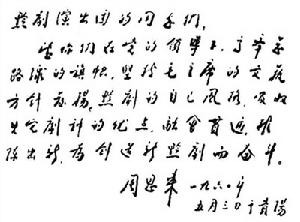 黔剧演出团的同志们,
望你们在党的领导下,高举总
路线的旗帜,坚持毛主席的文艺
方针,发扬黔剧的自己风格,吸收
其它剧种的优点,融会贯通,推
陈出新,为创造新黔剧而奋斗。
周恩来 一九六〇年
五月三日于贵阳